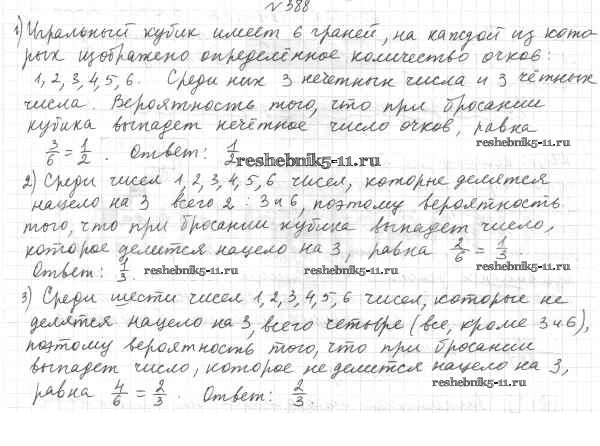 №388
1) Игральный кубик имеет 6 граней, на каждой из кото-
рых изображено определённое количество очков:
1, 2, 3, 4, 5, 6. Среди них 3 нечетных числа и 3 чётных
числа. Вероятность того, что при бросании
кубика выпадет нечётное число очков, равна
3/6 = 1/2. Ответ: 1/2
reshebnik5-11.ru
reshebnik5-11.ru
2) Среди чисел 1, 2, 3, 4, 5, 6 чисел, которые делятся
нацело на 3 всего 2 : 3 и 6, поэтому вероятность
того, что при бросании кубика выпадет число,
которое делится нацело на 3, равна 2/6 = 1/3.
Ответ: 1/3.
reshebnik5-11.ru
reshebnik5-11.ru
reshebnik5-11.ru
3) Среди шести чисел 1, 2, 3, 4, 5, 6 чисел, которые не
делятся нацело на 3, всего четыре (все, кроме 3 и 6),
поэтому вероятность того, что при бросании
выпадет число, которое не делится нацело на 3,
равна 4/6 = 2/3. Ответ: 2/3
reshebnik5-11.ru